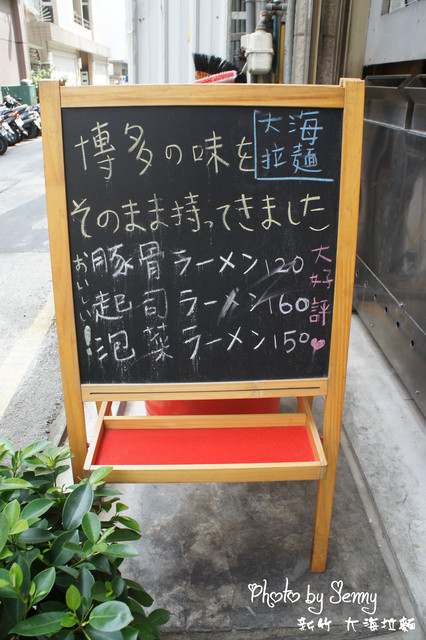 博多の味を
大海
拉麵
そのまま持ってきました
おいしい!
豚骨ラーメン120
起司ラーメン160
泡菜ラーメン150
大好評♥
Photo by Jenny
新竹 大海拉麵